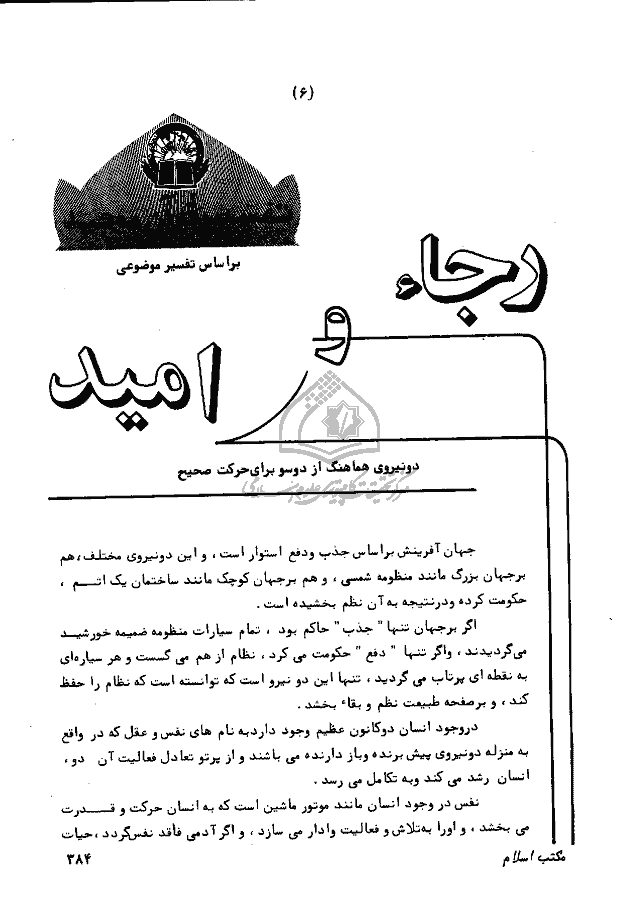 (۶)
براساس تفسیر موضوعی
رجاء
و
امید
دونیروی هماهنگ از دوسو برای حرکت صحیح
جهان آفرینش براساس جذب ودفع استوار است ، و این دونیروی مختلف،هم
برجهان بزرگ مانند منظومه شمسی ، و هم برجهان کوچک مانند ساختمان یک اتـــم ،
حکومت کرده ودرنتیجه به آن نظم بخشیده است .
اگر برجهان تنها " جذب " حاکم بود ، تمام سیارات منظومه ضمیمه خورشیـد
می‌گردیدند ، واگر تنها " دفع " حکومت می کرد ، نظام از هم می گسست و هر سیاره‌ای
به نقطه ای پرتاب می گردید ، تنها این دو نیرو است که توانسته است که نظام را حفظ
کند ، و برصفحه طبیعت نظم و بقاء بخشد .
دروجود انسان دوکانون عظیم وجود داردبه نام های نفس و عقل که در واقع
به منزله دونیروی پیش برنده وباز دارنده می باشند و از پرتو تعادل فعالیت آن دو ،
انسان رشد می کند وبه تکامل می رسد .
نفس در وجود انسان مانند موتور ماشین است که به انسان حرکت و قـــدرت
می بخشد ، و اورا به‌تلاش و فعالیت وادار می سازد ، و اگر آدمی فاقد نفس‌گردد ،حیات
مکتب اسلام
۳۸۴